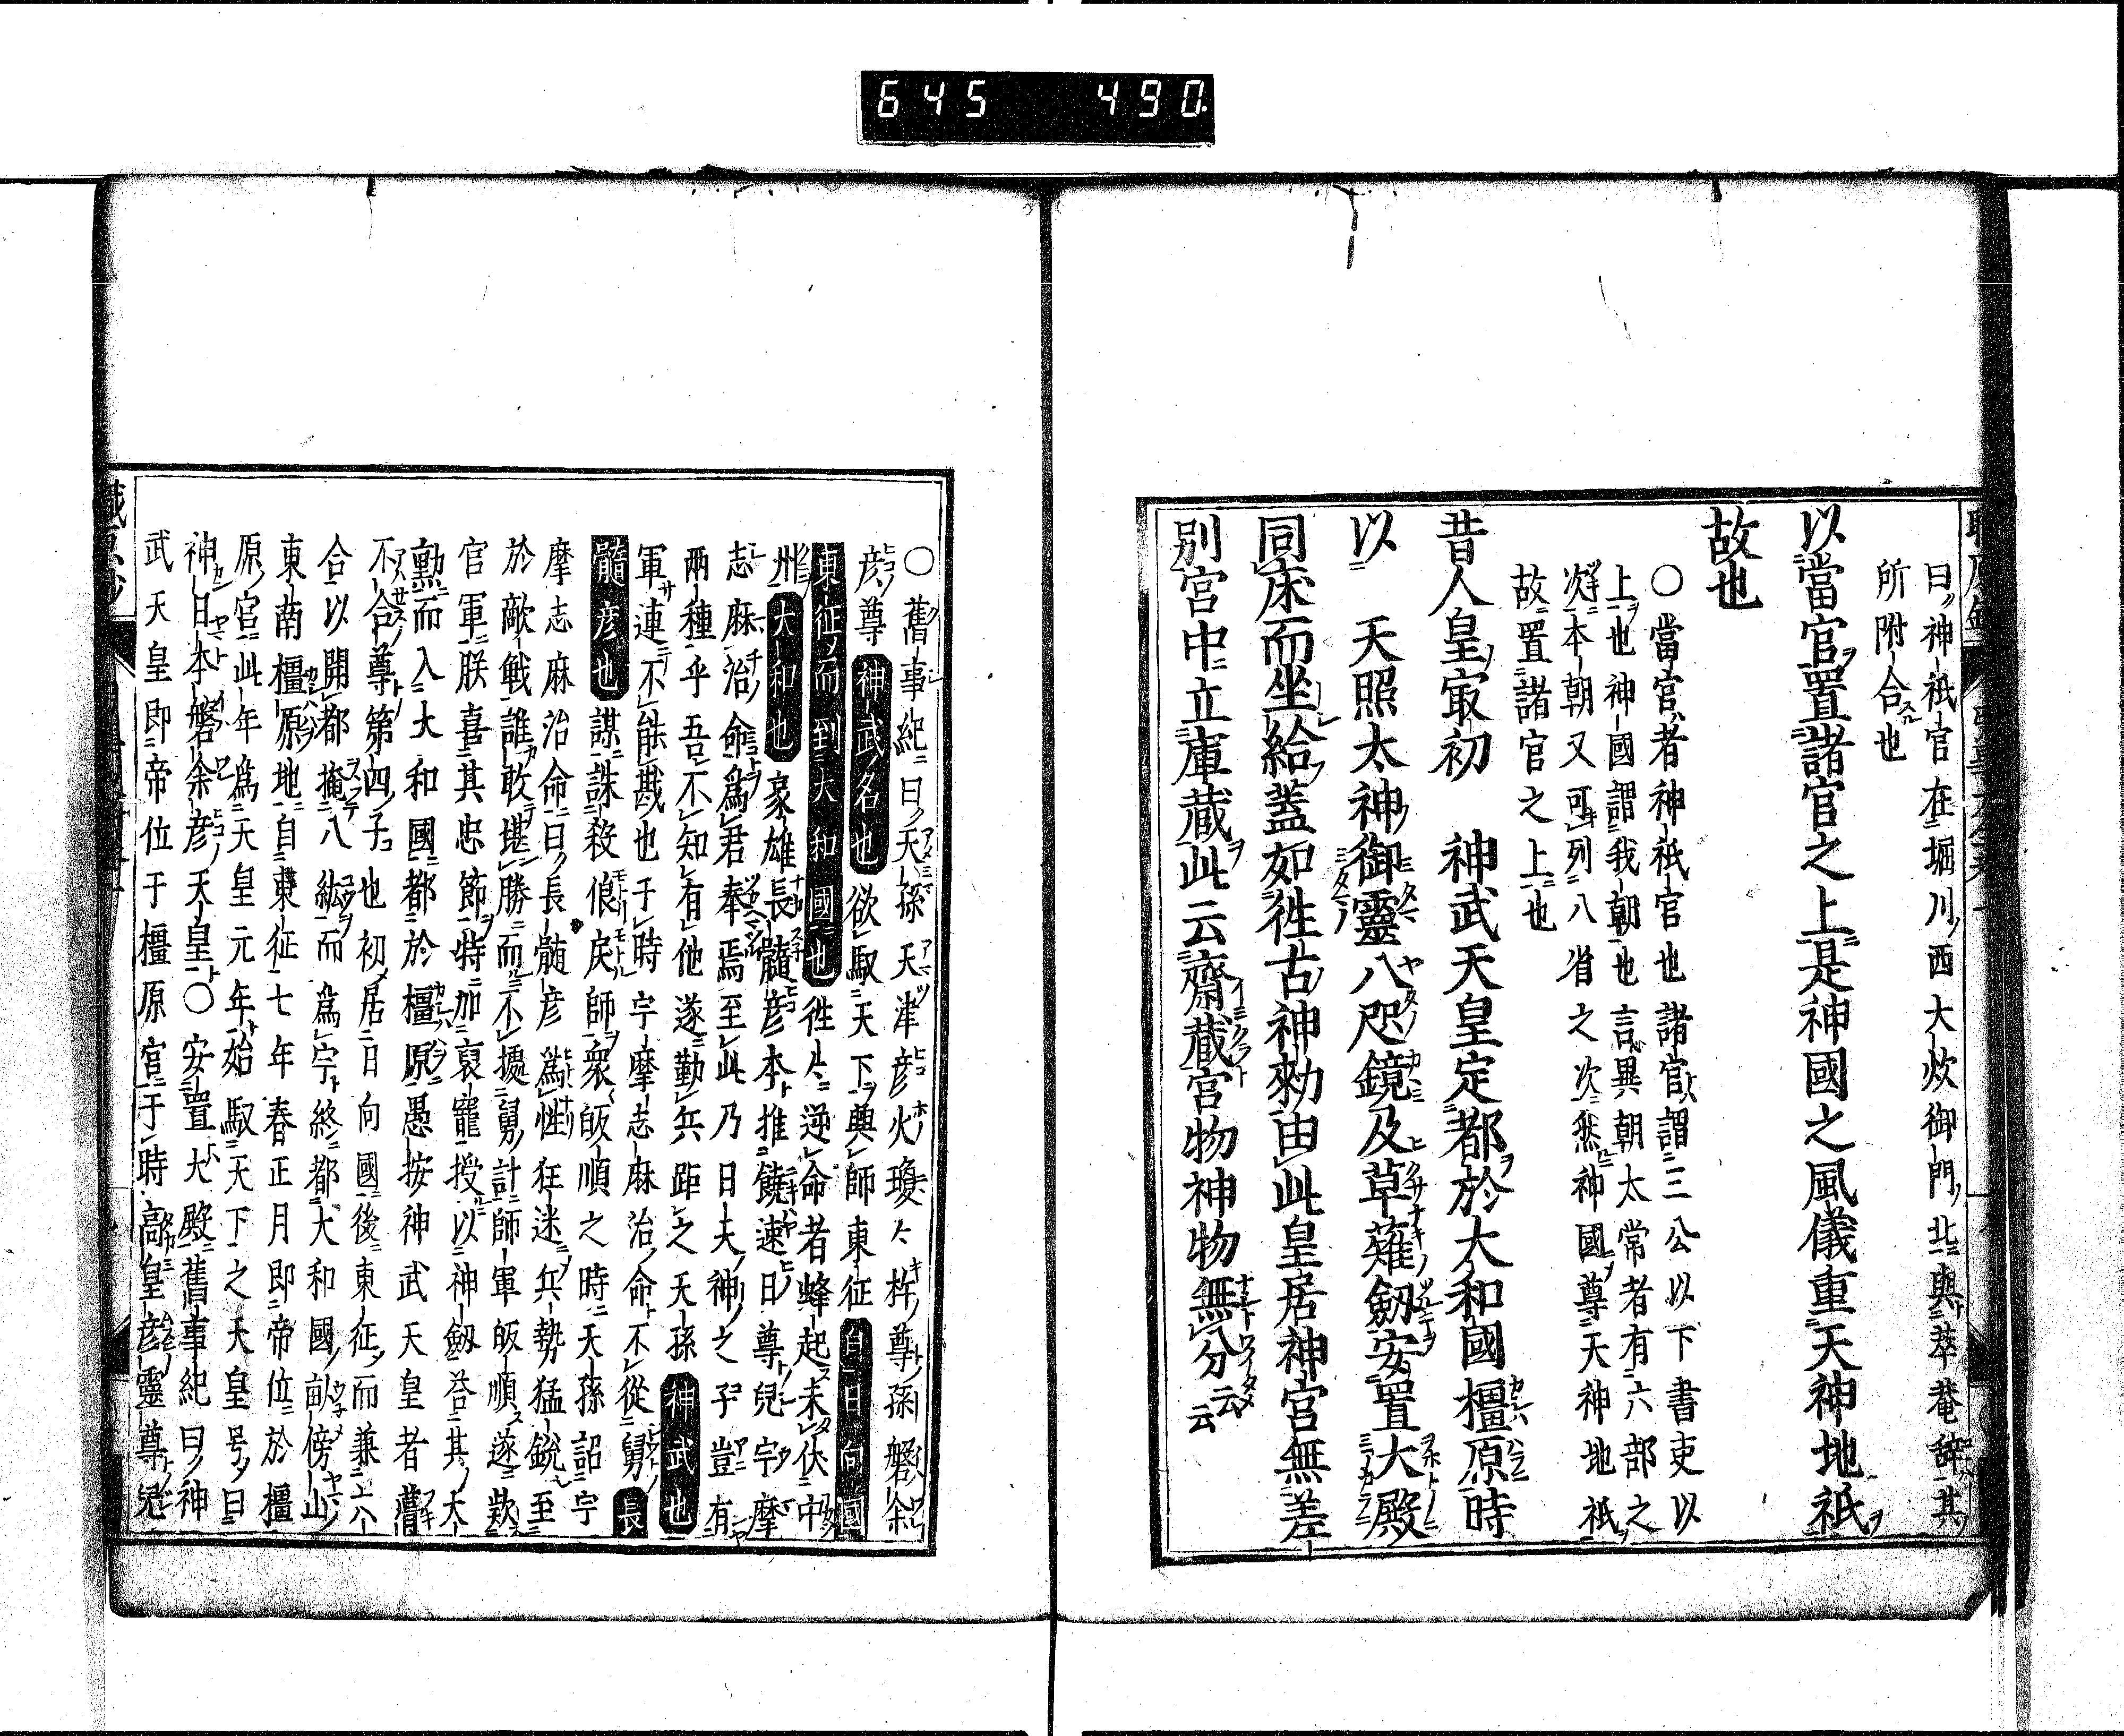 645 490
曰神祇官在堀川西大炊御門北與萃菴辭其
所附合也
以當官置諸官之上是神國之風儀重天神地祇
故也
○當官者神祇官也諸官謂三公以下書吏以
上也神國謂我朝也言異朝太常者有六部之
次本朝又可列八省之次然神國尊天神地祇
故置諸官之上也
昔人皇㝡初 神武天皇定都於大和國橿原時
以 天照太神御靈八咫鏡及草薙劔安置大殿
同床而坐給蓋如徃古神勑由此皇居神宮無差
別宮中立庫藏此云齋藏宮物神物無分云云
○舊事紀曰天孫天津彦火瓊〻杵尊孫磐余
彦尊神武名也欲馭天下興師東征自日向國
東征而到大和國也徃〻逆命者蜂起未伏中
州大和也豪雄長髓彦本推饒速日尊兒宇摩
志麻治命爲君奉焉至此乃曰天神之子豈有
兩種乎吾不知有他遂勤兵距之天孫神武也
軍連不能戡也于時宇摩志麻治命不從舅長
髓彦也謀誅殺佷戾師衆皈順之時天孫詔宇
摩志麻治命曰長髄彦爲性狂迷兵勢猛銳至
於敵戰誰敢堪勝而不據舅計師軍皈順遂欵
官軍朕喜其忠節特加襃寵授以神劔荅其大
勲而入大和國都於橿原愚按神武天皇者葺
不合尊第四子也初居日向國後東征而兼六
合以開都掩八紘而爲宇終都大和國畝傍山
東南橿原地自東征七年春正月即帝位於橿
原宮此年爲天皇元年始馭天下之天皇号曰
神日本磐余彦天皇○安置大殿舊事紀曰神
武天皇即帝位于橿原宮于時高皇彦靈尊兒